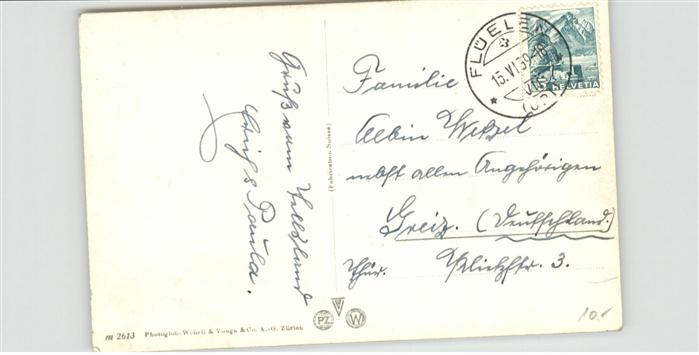 Gruß vom Tellsland
Paula.
(Fabrication Suisse)
FLÜELEN
15.VI.39
(URI)
HELVETIA
Familie
Albin Wetzel
nebst allen Angehörigen
Greiz. (Deutschland.)
Thür.
3.
10.-
m 2613 Photoglob-Wehrli & Vouga & Co. A.-G. Zürich
PZ
W